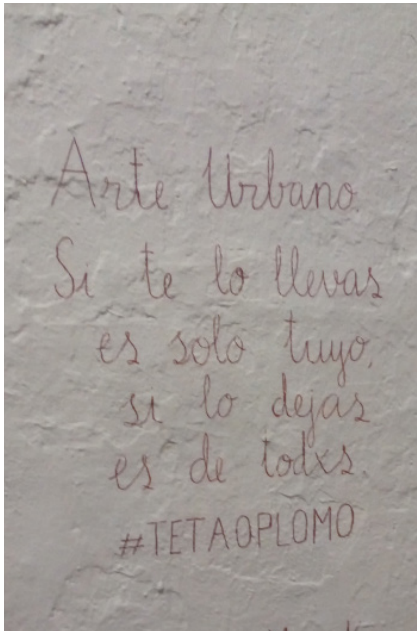 Arte Urbano.
Si te lo llevas
es solo tuyo,
si lo dejas
es de todxs.
#TETAOPLOMO